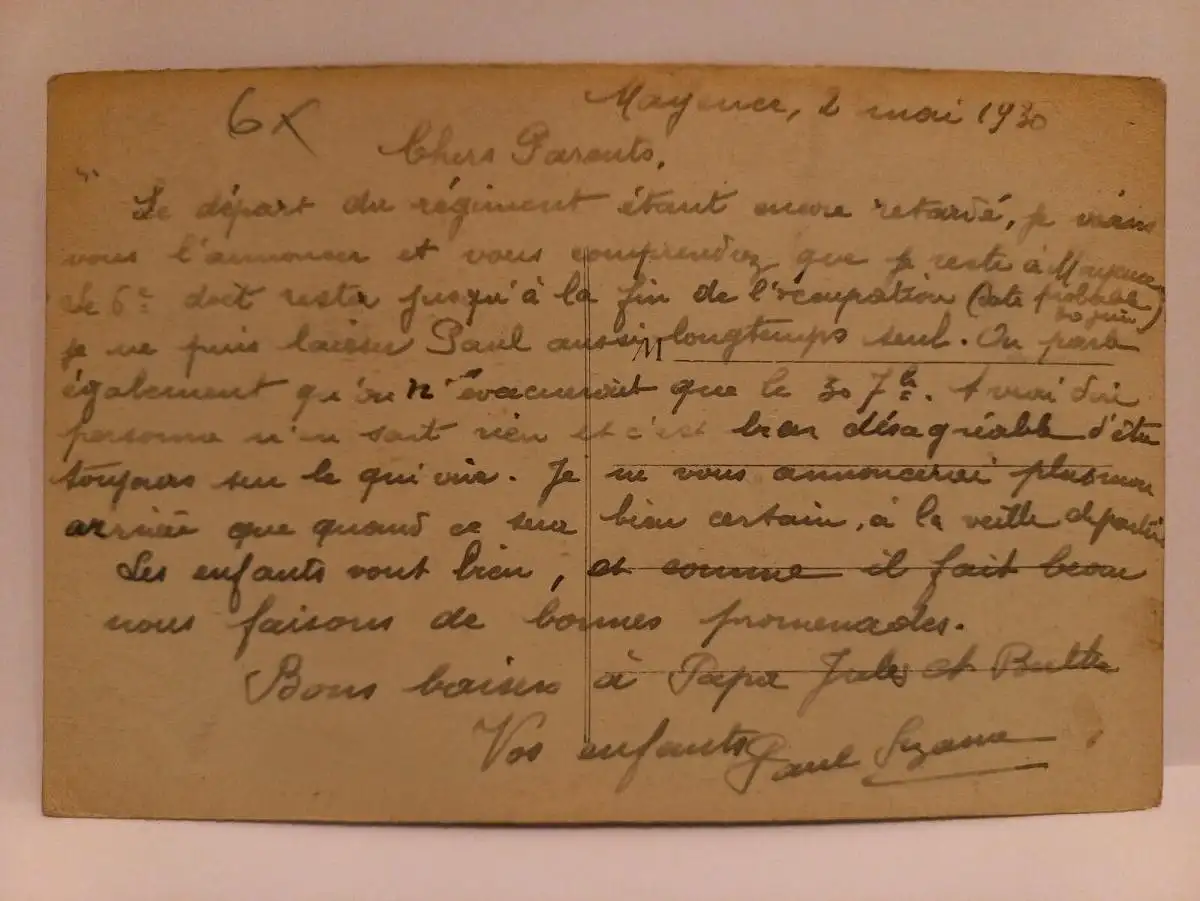 6x
Mayence, 2 mai 1930
Chers Parents,
Le départ du régiment étant encore retardé, je viens
vous l'annoncer et vous comprendrez que je reste à Mayence
Le 6e doit rester jusqu'à la fin de l'occupation (date probable
30 juin)
je ne puis laisser Paul aussi longtemps seul. On parle
M
également qu'on n'évacuerait que le 30 7b. A vrai dire
personne n'en sait rien et c'est bien désagréable d'être
toujours sur le qui vive. Je ne vous annoncerai plus mon
arrivée que quand ce sera bien certain, à la veille de partir
Les enfants vont bien, et comme il fait beau
nous faisons de bonnes promenades.
Bons baisers à Papa Jules et
Vos enfants Paul Suzanne